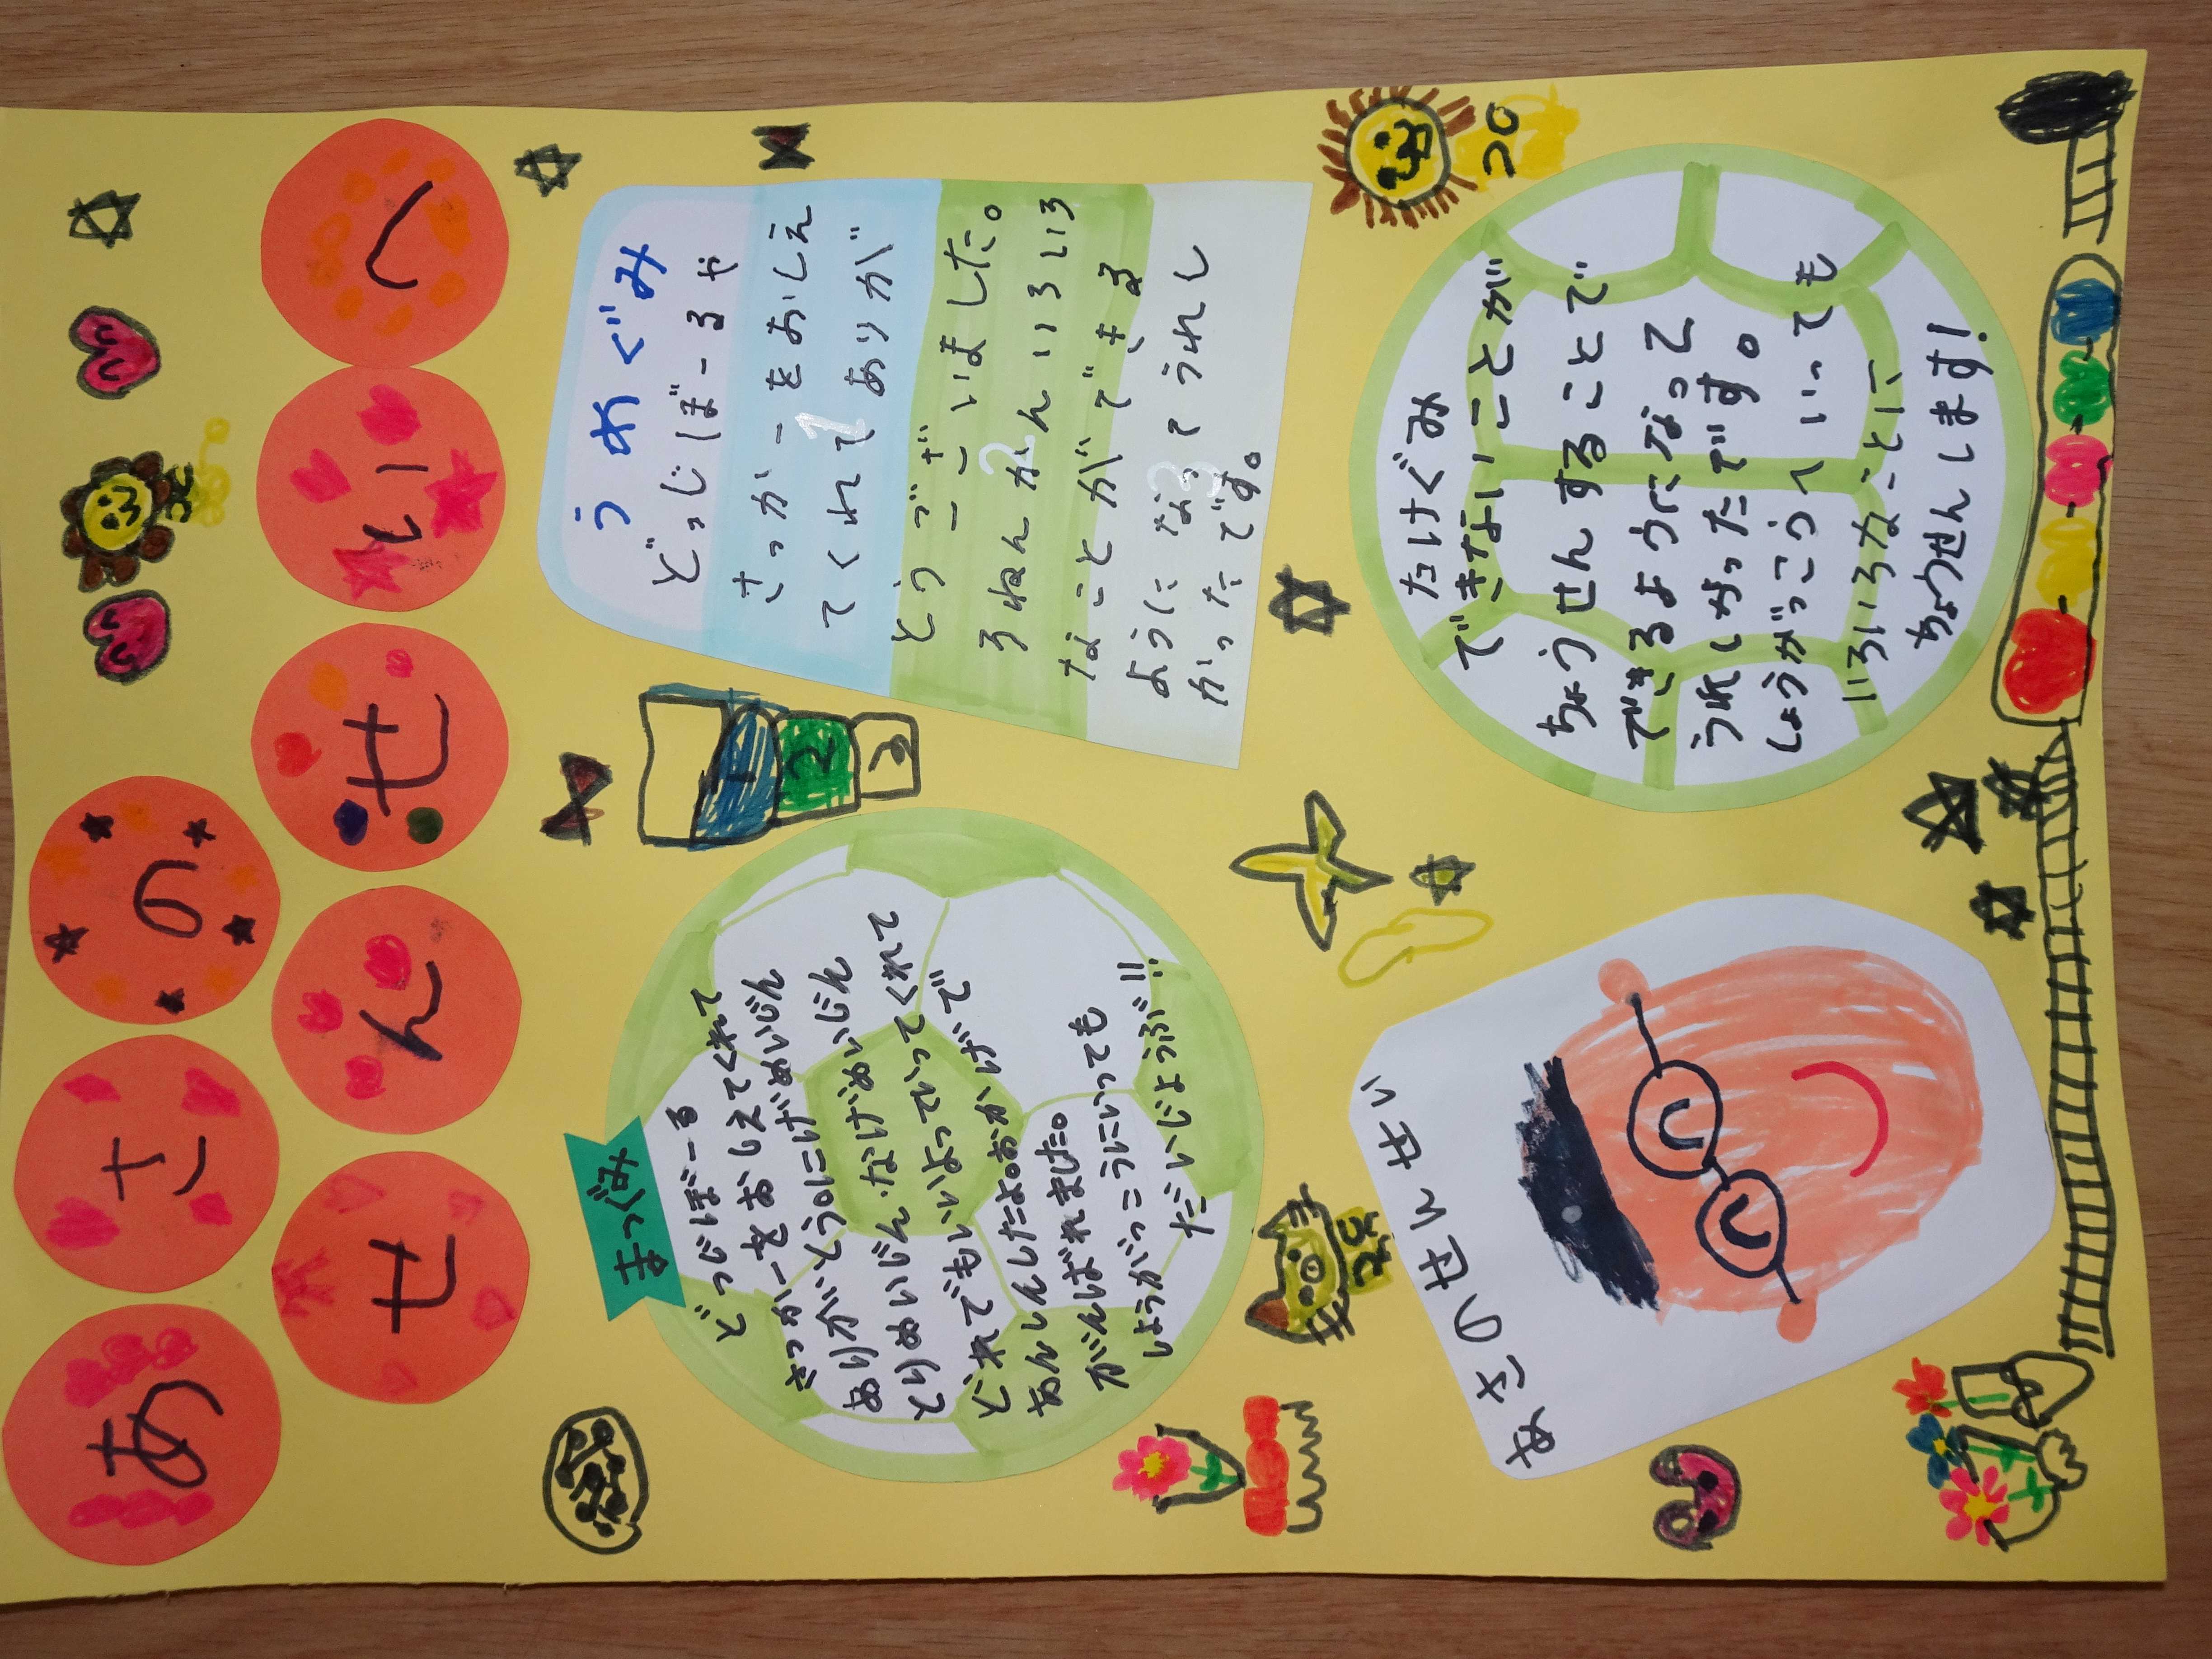 あさの
せんせいへ
まつぐみ
どっじぼーる
さっかーをおしえてくれて
ありがとう。にげめいじん
とりめいじん・なげめいじん
どれでもいいよっていってくれて
あんしんしたよ。おかげで
がんばれました。
しょうがっこうにいっても
だいじょうぶ!!
うめぐみ
どっじぼーるや
さっかーをおしえ
てくれてありが
とうございました。
3ねんかんいろいろ
なことができる
ようになってうれし
かったです。
1
2
3
1
2
3
あさのせんせい
たけぐみ
できないことが
ちょうせんすることで
できるようになって
うれしかったです。
しょうがっこうへいっても
いろいろなことに
ちょうせんします!